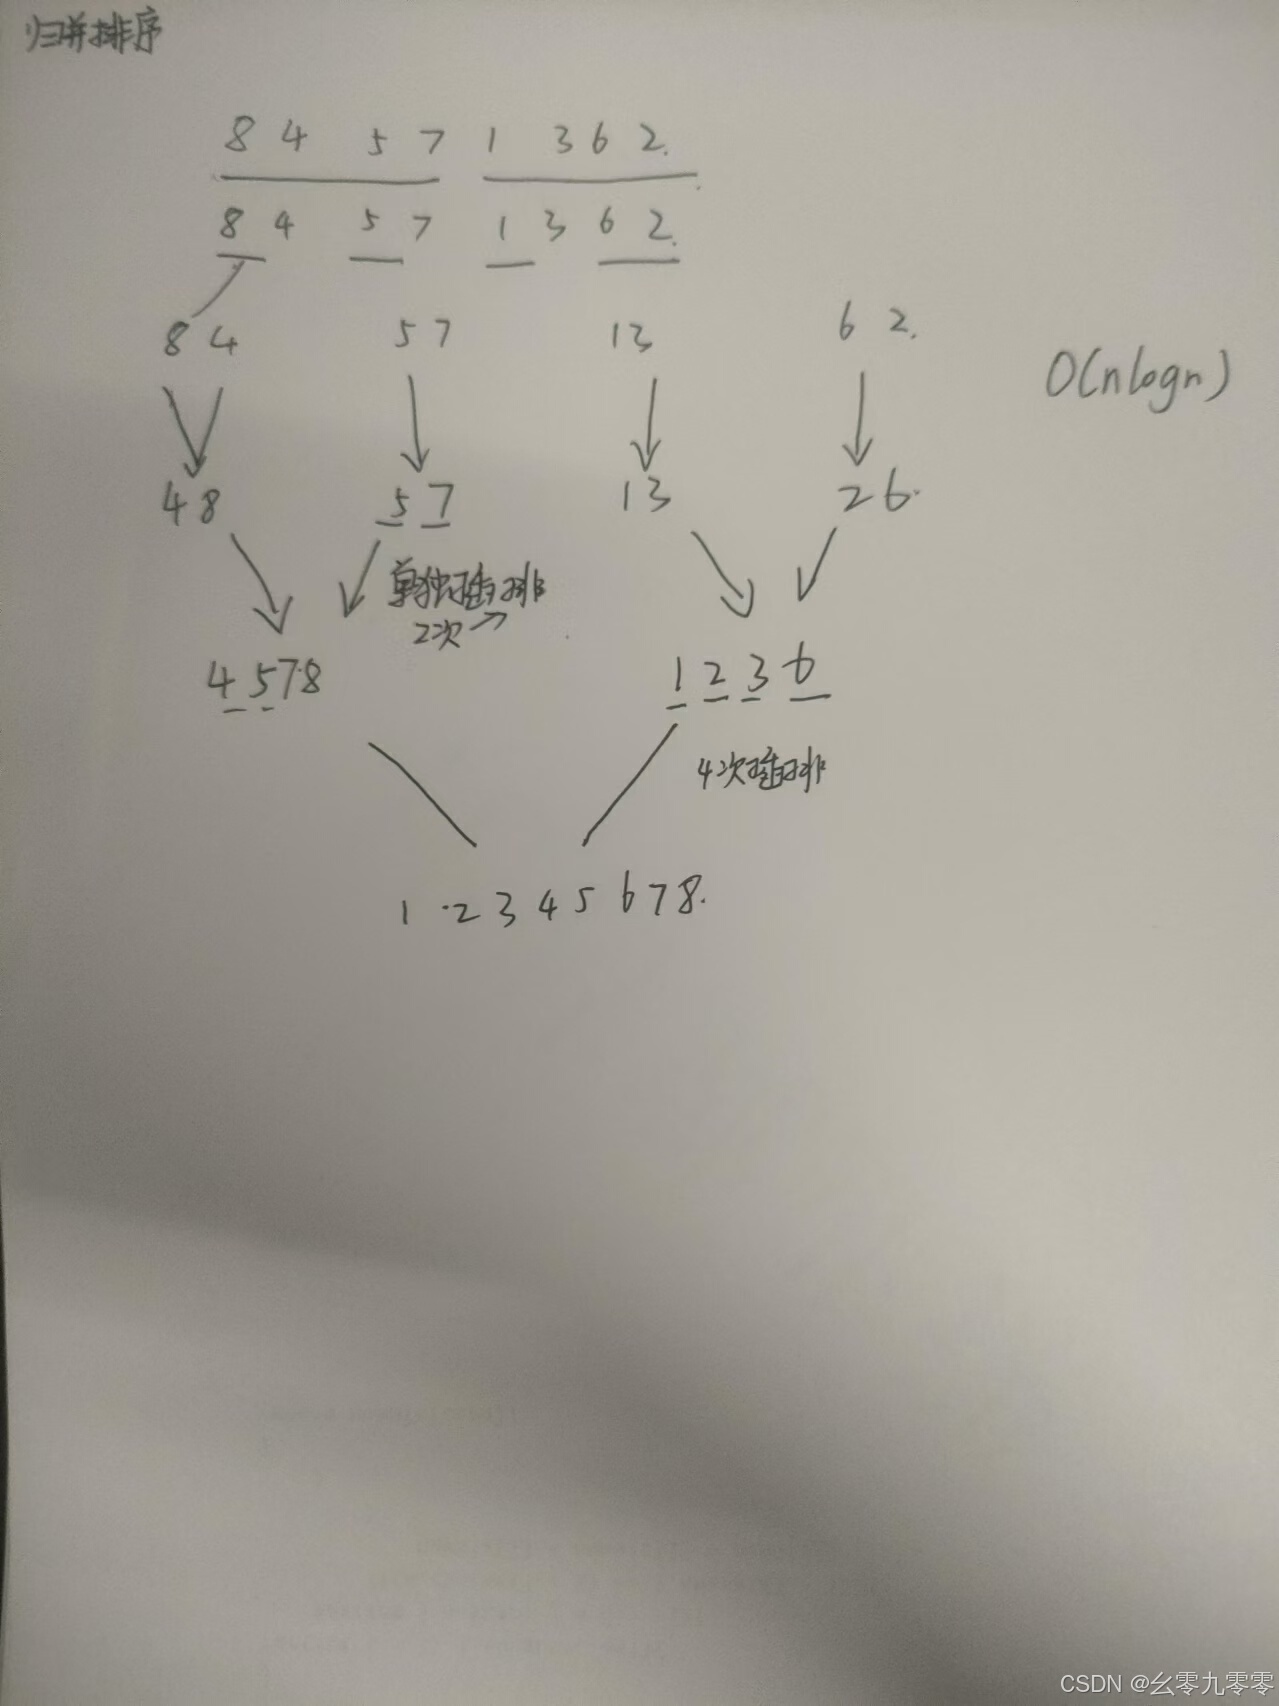 归并排序
8 4 5 7 1 3 6 2.
8 4 5 7 1 3 6 2.
8 4 5 7 1 3 6 2.
O(nlogn)
4 8 5 7 1 3 2 6.
单独插排
2次→
4 5 7 8 1 2 3 6
4次插排
1 2 3 4 5 6 7 8.
CSDN @幺零九零零